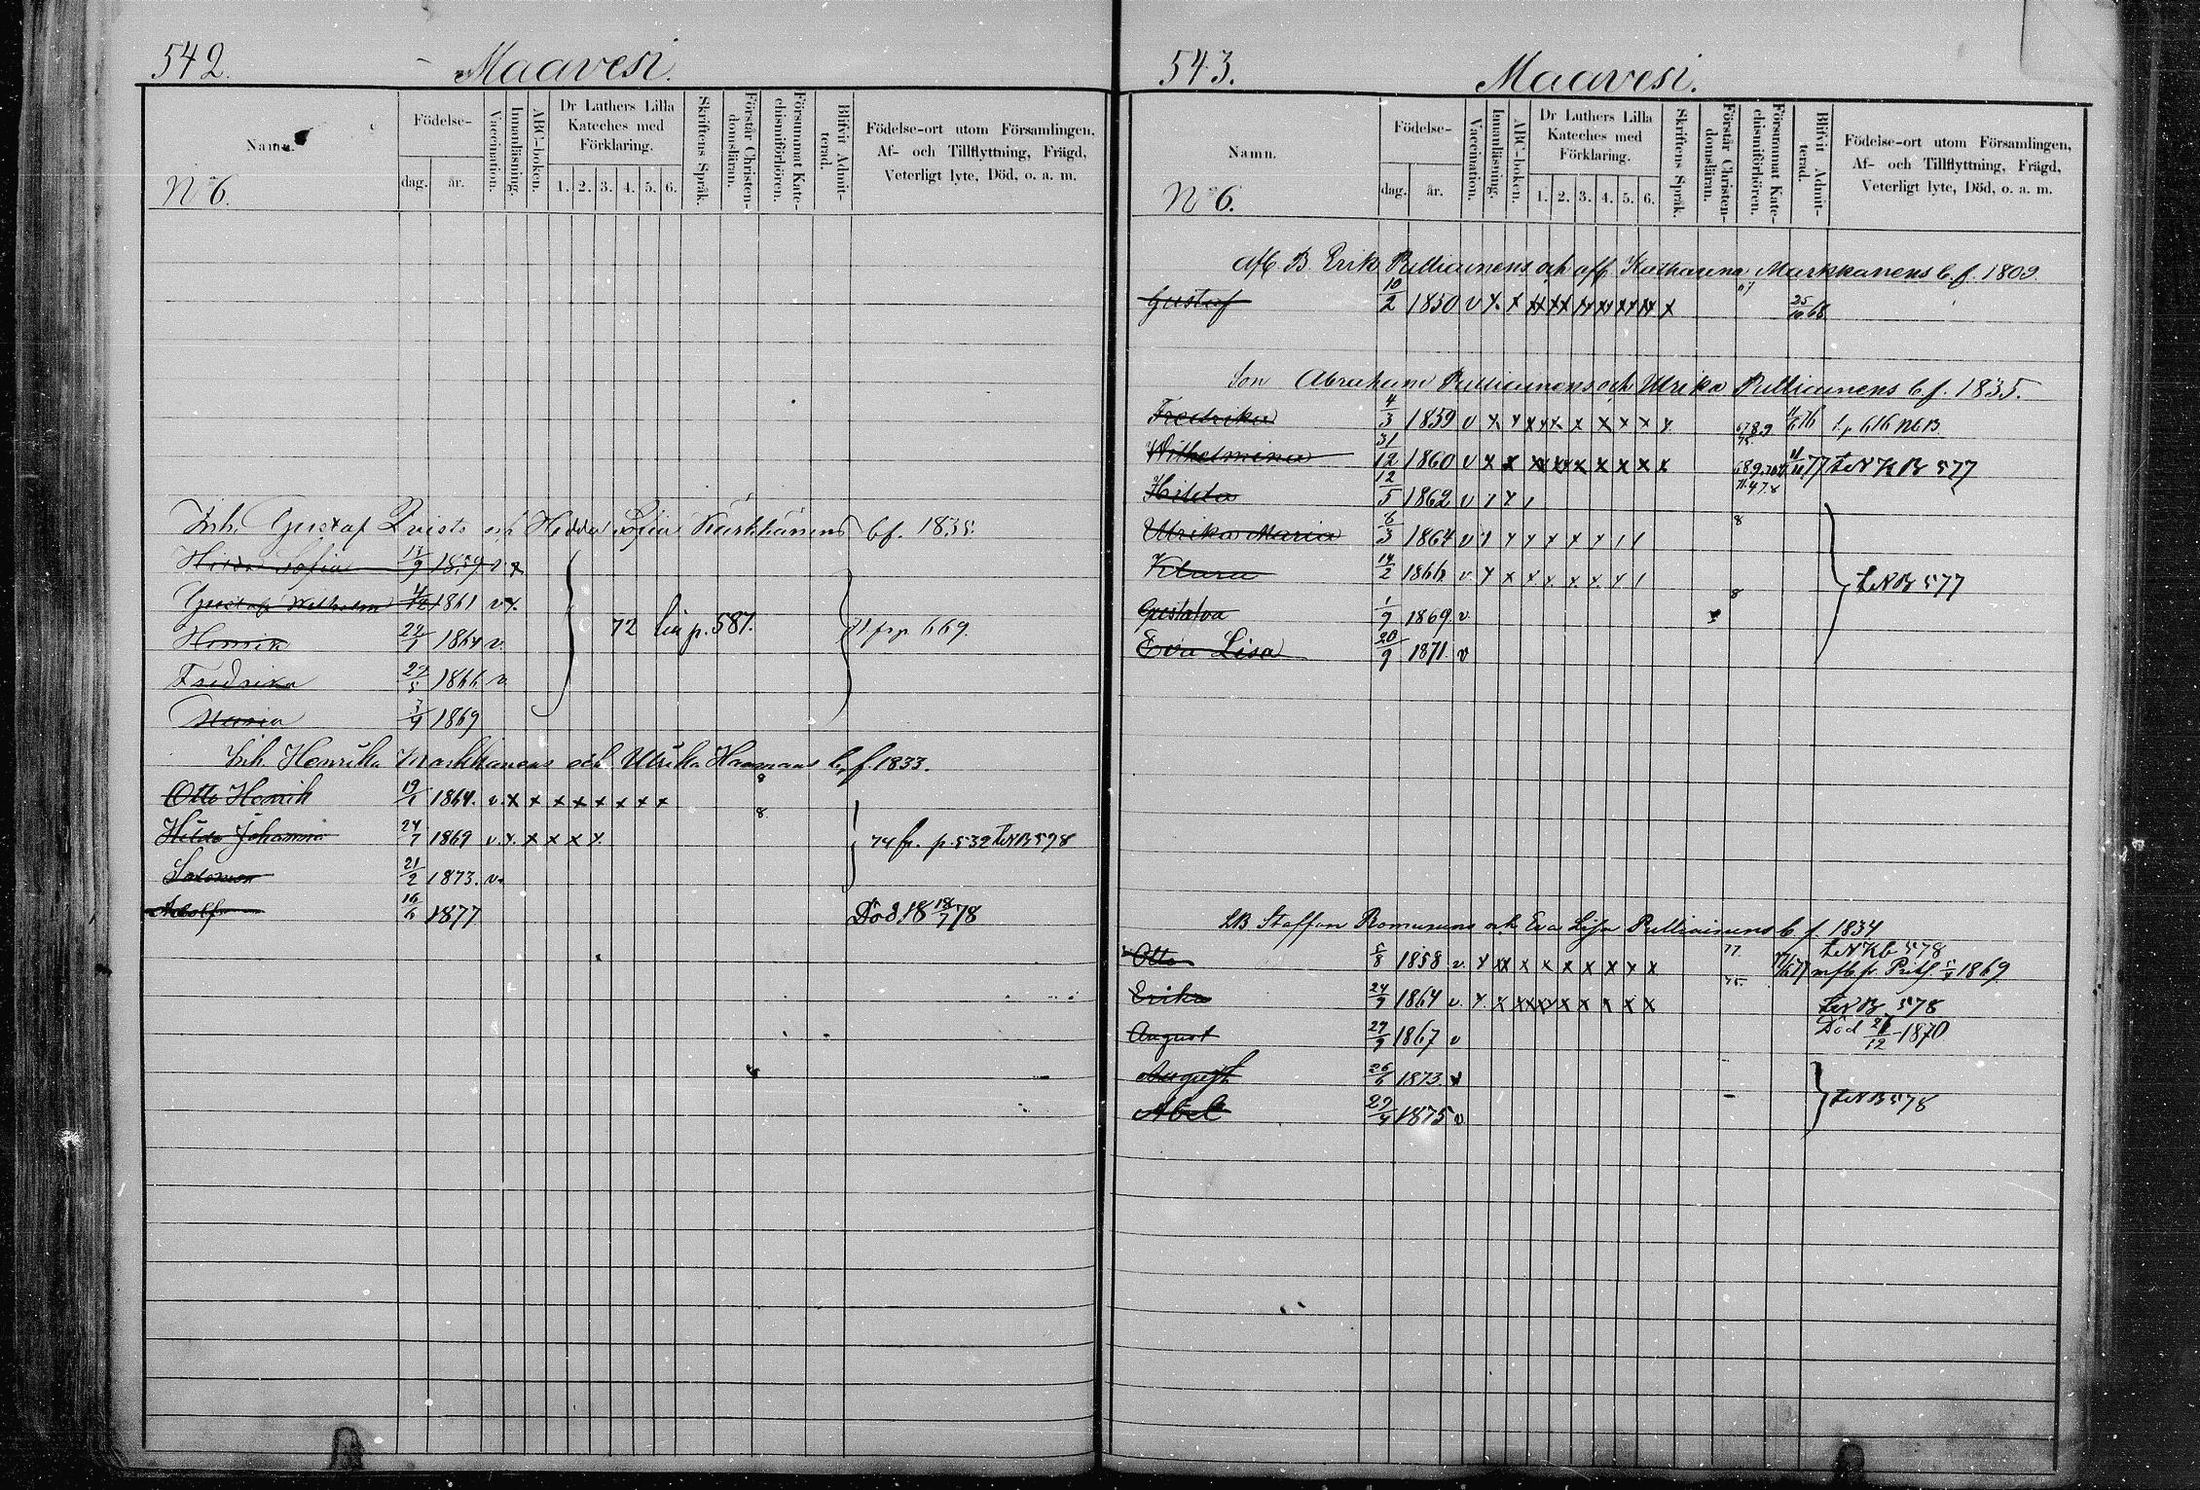 542.
Maavesi.
Namn.
Födelse-
dag.
år.
Vaccination.
Innanläsning.
ABC-boken.
Dr Luthers Lilla
Kateches med
Förklaring.
1. 2. 3. 4. 5. 6.
Skriftens Språk.
Förstår Christen-
domsläran.
Försummat Kate-
chismiförhören.
Blifvit Admit-
terad.
Födelse-ort utom Församlingen,
Af- och Tillflyttning, Frägd,
Veterligt lyte, Död, o. a. m.
No 6.
Inh. Gustaf Qvists och Hedda Sofia Kärkkäinens b f. 1835.
Hilda Sofia 1859 v x
Gustaf Wilhelm 1861 v x
Henrik 1864 v.
Fredrika 1866 v
72 p. 581.
71 fr p 669.
Maria 1869
Inh. Henrik Markkanens och Ulrika b. f. 1833.
Otto Henrik 19 1864. v. x x x x x x x x
8
Hilda Johanna 24/7 1869 v. x. x x x x
8
Salomon 21/2 1873. v.
74 fr. p. 532 LNB 578
Adolf 16/6 1877
Död 18/7 78
543.
Maavesi.
Namn.
Födelse-
dag.
år.
Vaccination.
Innanläsning.
ABC-boken.
Dr Luthers Lilla
Kateches med
Förklaring.
1. 2. 3. 4. 5. 6.
Skriftens Språk.
Förstår Christen-
domsläran.
Försummat Kate-
chismiförhören.
Blifvit Admit-
terad.
Födelse-ort utom Församlingen,
Af- och Tillflyttning, Frägd,
Veterligt lyte, Död, o. a. m.
No 6.
B. Erik Pulliainens och Katharina Markkanens b. f. 1809.
Gustaf 10/2 1850 v x x xx xx xx xx xx xx x 25/10 68
Son Abraham Pulliainens och Ulrika Pulliainens b f. 1835.
Fredrika 4/3 1859 v x x x x x x x x x 76 p 616
Wilhelmina 31/12 1860 v x x x x x x x x x 77 577
Hilda 12/5 1862 v
Ulrika Maria 6/3 1864 v
8
Klara 14/2 1866 v
LNB 577
Gustava 1/9 1869 v
8
Eva Lisa 20/9 1871 v
LB Staffan Romunens och Eva Lisa Pulliainens b f. 1834
Otto 5/8 1858 v. x xx x x x x x x x
77.
578
1869
Erika 24/9 1864 v. x x x x x x x x x
75.
LNB 578
August 29/9 1867 v
Död 21/12 1870
August 26/6 1873.
Abel 29 1875 v
LNB 578